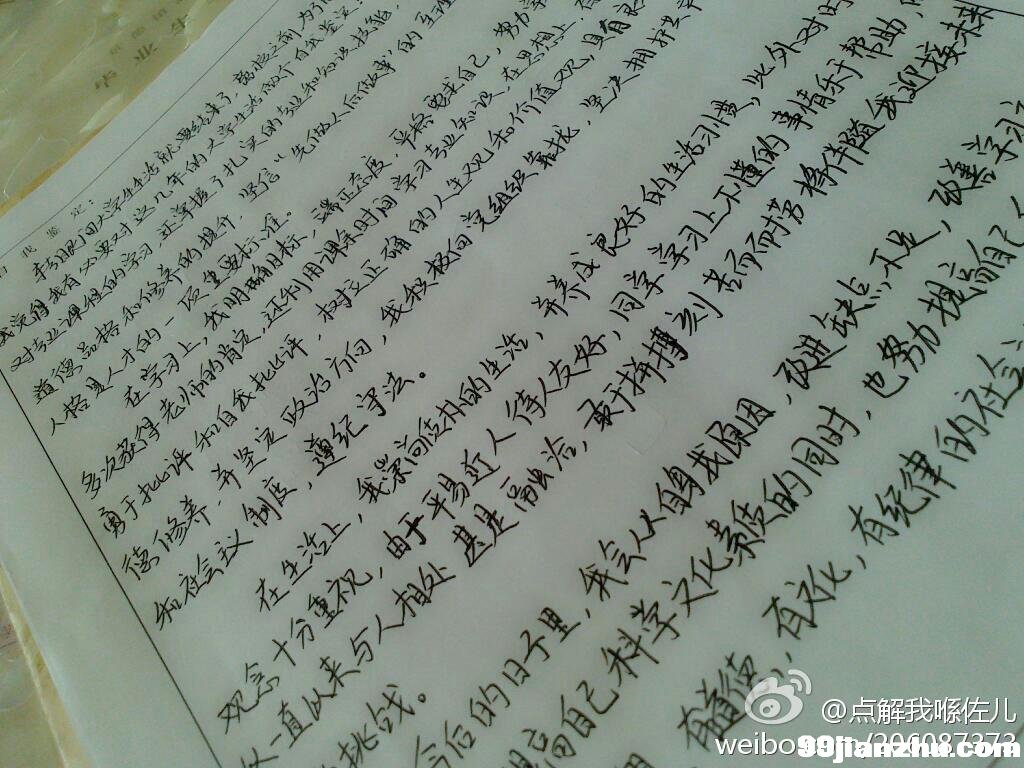 自我鉴定：
转眼间大学生生活就要结束了，离校之前为了
我觉得我有必要对这几年的大学生活做个自我鉴定：
对专业课程的学习，还掌握了扎实的专业知识技能，
道德品格和修养的提升，坚信“先做人后做事”的至理
人格是人才的一项重要标准。
在学习上，我明确目标，端正态度，严格要求自己，努力学
多次获得老师的肯定，还利用课余时间学习专业知识，在思想上，
勇于批评和自我批评，树立正确的人生观和价值观，具有良
德修养，并坚定政治方向，我积极向党组织靠拢，坚决拥护共
和社会议制度，遵纪守法。
在生活上，我崇尚 的生活，并养成良好的生活习惯，此外对时
观念十分重视，由于平易近人待人友好，同学学习上不懂的事情乐于帮助，
一直以来与人相处甚是融洽，敢于拼搏刻苦 将伴随我迎接
挑战。
今后的日子里，我会从自身找原因，改进缺点、不足，改善学习
提高自己科学文化素质的同时，也努力提高自己
有道德，有文化，有纪律的社会
@点解我喺佐儿
weibo.com/206087373
99jianzhu.com